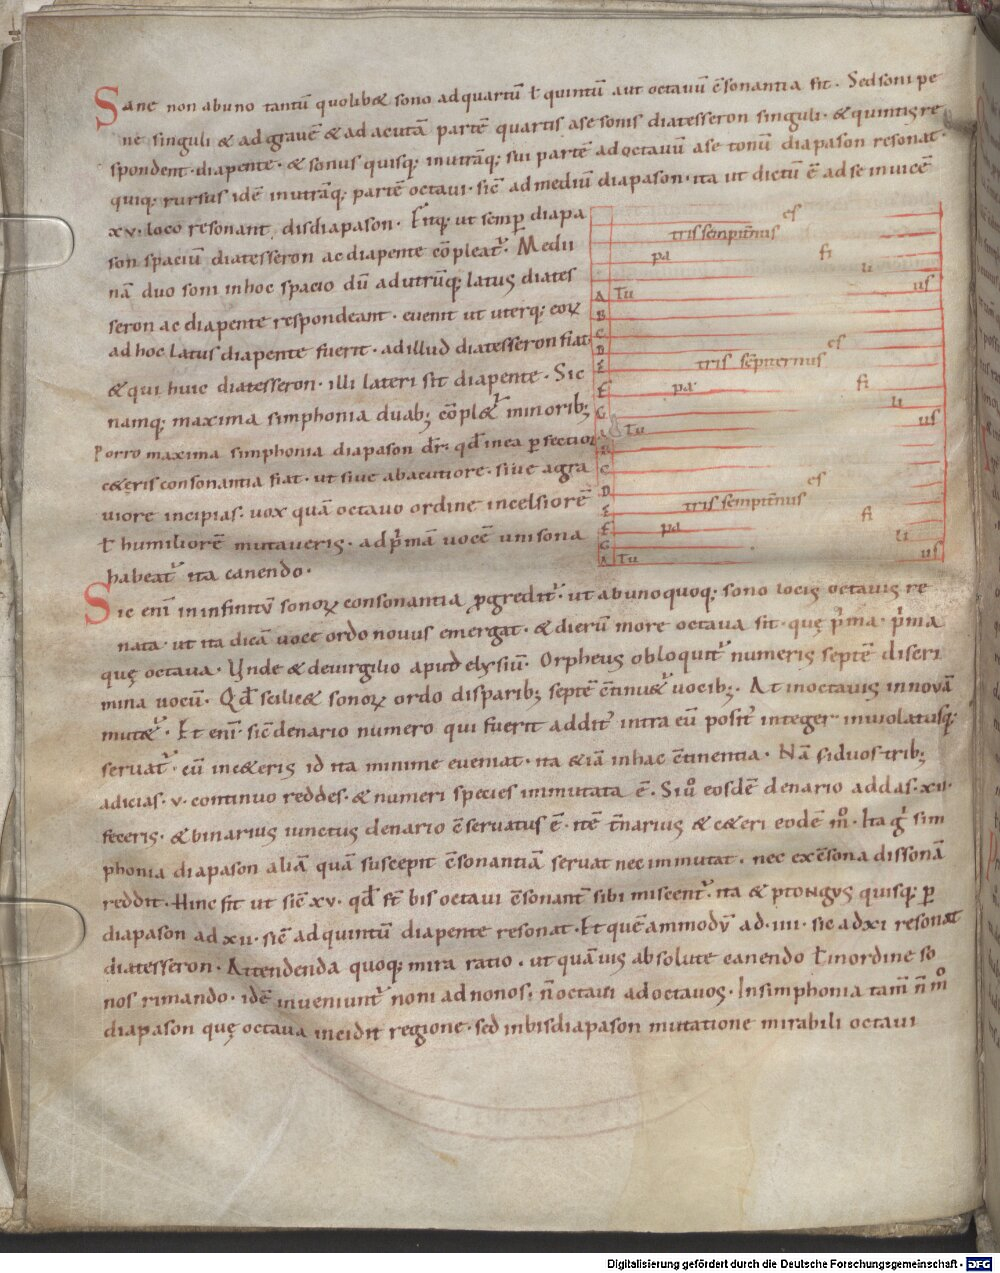 Sane non abuno tantū quolibet sono adquartū ł quintū aut octauū c̄sonantia sit · Sedsoni pe
ne singuli & adgrauē & adacutā partē quartis asesonis diatesseron singuli · & quintis re
spondent · diapente · & sonus quisq; inutrāq; sui partē adoctauū ase tonū diapason resonat ·
quiq; rursus idē inutrāq; partē octaui · sic̄ admediū diapason · ita ut dictū ē adse inuicē
xv · loco resonant disdiapason · Fitq; ut semp diapa
son spaciū diatesseron ac diapente cōpleat᷑ · Medii
nā duo soni inhoc spacio dū adutrūq; latus diates
seron ac diapente respondeant · euenit ut uterq; eoꝝ
adhoc latus diapente fuerit · adillud diatesseron fiat
& qui huic diatesseron · illi lateri sit diapente · Sic
namq; maxima simphonia duab; cōplet᷑ minorib;
Porro maxima simphonia diapason dr̄ · qd̄ inea perfectior
ceteris consonantia fiat · ut siue abacutiore · siue agra
uiore incipias · uox quā octauo ordine incelsiorē
ł humiliorē mutaueris · adp̄mā uocē unisona
habeat᷑ ita canendo ·
es
tris sempit̄nus
pa fi
li
A Tu us
B
C
D es
E tris sēpiternus
F pa fi
G li
A Tu us
B
C
D es
E tris sempit̄nus fi
F pa
G li
A Tu us
Sic enī ininfinitū sonoꝝ consonantia ꝓgredit᷑ · ut abunoquoq; sono locis octauis re
nata · ut ita dicā uoce ordo nouus emergat · & dierū more octaua sit · quę p̄ma · p̄ma
quę octaua · Vnde & deuirgilio apud elysiū · Orpheus obloquit᷑ numeris septē discri
mina uocū · Qd̄ scilicet sonoꝝ ordo disparib; septē c̄tinuet᷑ uocib; · At inoctauis innouā
mutet᷑ · Et enī sic̄ denario numero qui fuerit addit᷑ intra eū posit᷑ integer inuiolatusq;
seruat᷑ · cū inceteris id ita minime eueniat · ita & iā inhac c̄tinentia · Nā siduos trib;
adicias · v · continuo reddes · & numeri species immutata ē · Siu̇ eosdē denario addas · xii ·
feceris · & binarius iunctus denario c̄seruatus ē · itē t̄narius & ceteri eodē m̊ · Ita g̊ sim
phonia diapason aliā quā suscepit c̄sonantiā seruat necimmutat · nec exc̄sona dissonā
reddit · Hinc fit ut sic̄ xv · qd̄ st̄ bis octaui c̄sonant̄ sibi miscent᷑ · ita & ptongus quisq; ꝑ
diapason ad xii · sic̄ adquintū diapente resonat · Et quēammodū ad · iiii · sic adxi resonat
diatesseron · Attendenda quoq; mira ratio · ut quāuis absolute canendo ł inordine so
nos rimando · idē inueniunt᷑ noni adnonos · n̄ octaui adoctauos · Insimphonia tam̄ n̄ m̊
diapason quę octaua incidit regione · sed inbisdiapason mutatione mirabili octaui
Digitalisierung gefördert durch die Deutsche Forschungsgemeinschaft - DFG